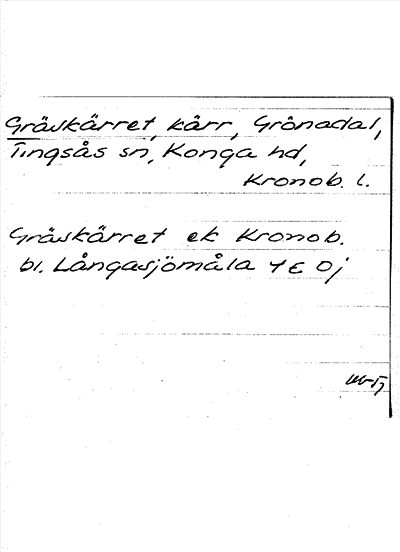 Gräskärret, kärr, Grönadal,
Tingsås sn, Konga hd,
Kronob. l.
Gräskärret ek Kronob.
bl. Långasjömåla 4 E 0j